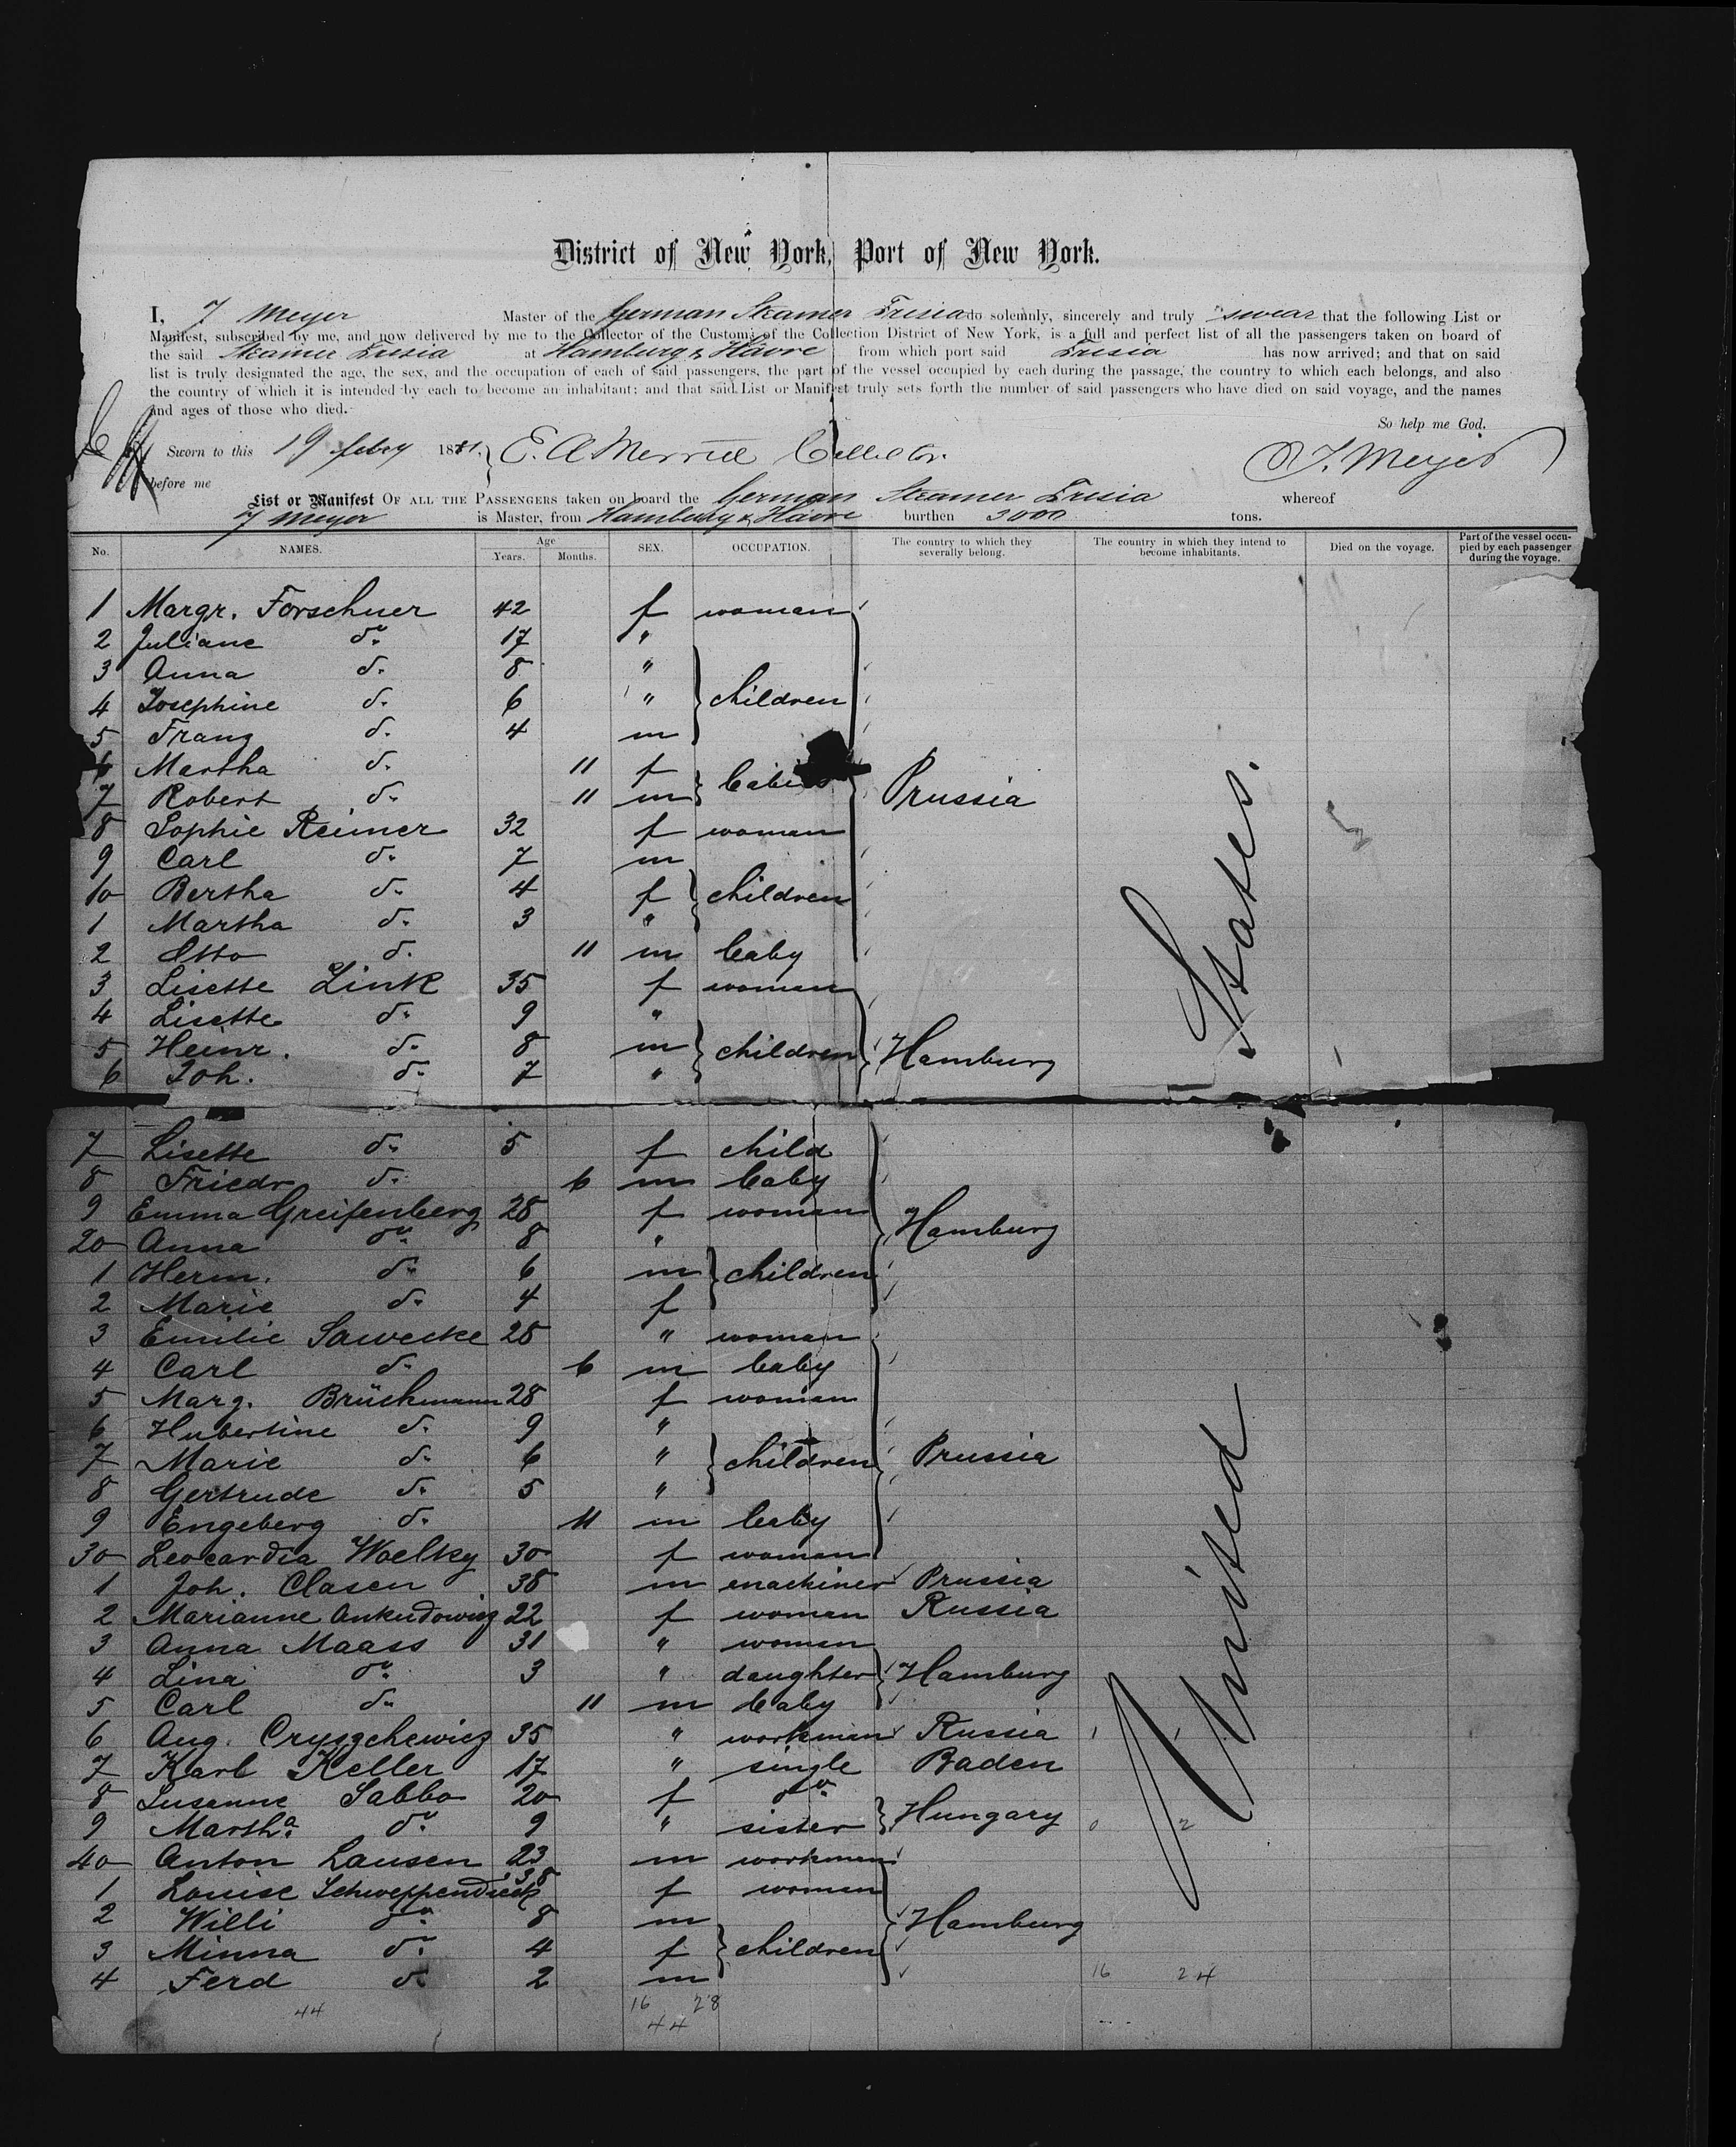 District of New York, Port of New York.
I, F Meyer Master of the German Steamer Frisia do solemnly, sincerely and truly swear that the following List or
Manifest, subscribed by me, and now delivered by me to the Collector of the Customs of the Collection District of New York, is a full and perfect list of all the passengers taken on board of
the said Steamer Frisia at Hamburg & Havre from which port said Frisia has now arrived; and that on said
list is truly designated the age, the sex, and the occupation of each of said passengers, the part of the vessel occupied by each during the passage, the country to which each belongs, and also
the country of which it is intended by each to become an inhabitant; and that said List or Manifest truly sets forth the number of said passengers who have died on said voyage, and the names
and ages of those who died.
So help me God.
Sworn to this 19 feby 1881. E. A Merrill F. Meyer
before me
List or Manifest OF ALL THE PASSENGERS taken on board the German Steamer Frisia whereof
F Meyer is Master, from Hamburg & Havre burthen 3000 tons.
No. NAMES. Age Years. Months. SEX. OCCUPATION. The country to which they severally belong. The country in which they intend to become inhabitants. Died on the voyage. Part of the vessel occupied by each passenger during the voyage.
1 Margr. Forschner 42 f woman
2 Juliane do. 17 "
3 Anna do. 8 "
4 Josephine do. 6 " children
5 Franz do. 4 m
6 Martha do. 11 f
7 Robert do. 11 m babies Prussia
8 Sophie Reimer 32 f woman
9 Carl do. 7 m
10 Bertha do. 4 f children
1 Martha do. 3 "
2 Otto do. 11 m baby
3 Lisette Link 35 f woman
4 Lisette do. 9 "
5 Heinr. do. 8 m children Hamburg
6 Joh. do. 7 "
7 Lisette do. 5 f child
8 Friedr do. 6 m baby
9 Emma Greifenberg 28 f woman Hamburg
20 Anna do. 8 "
1 Herm. do. 6 m children
2 Marie do. 4 f
3 Emilie Sawecke 28 " woman
4 Carl do. 6 m baby
5 Marg. Brückmann 28 f woman
6 Hubertine do. 9 "
7 Marie do. 6 " children Prussia
8 Gertrude do. 5 "
9 Engeberg do. 11 m baby
30 Leocardia Woelky 30 f woman
1 Joh. Clasen 38 m machiner Prussia
2 Marianne Ankudowicz 22 f woman Russia
3 Anna Maass 31 " woman
4 Lina do. 3 " daughter Hamburg
5 Carl do. 11 m baby
6 Aug. Cryszchewicz 35 " workman Russia
7 Karl Keller 17 " single Baden
8 Susanne Sabbo 20 f do.
9 Martha. do. 9 " sister Hungary
40 Anton Lausen 23 m workman
1 Louise Schweppendieck 38 f woman
2 Willi do. 8 m Hamburg
3 Minna do. 4 f children
4 Ferd do. 2 m
United States.
16 24
44 16 28
44